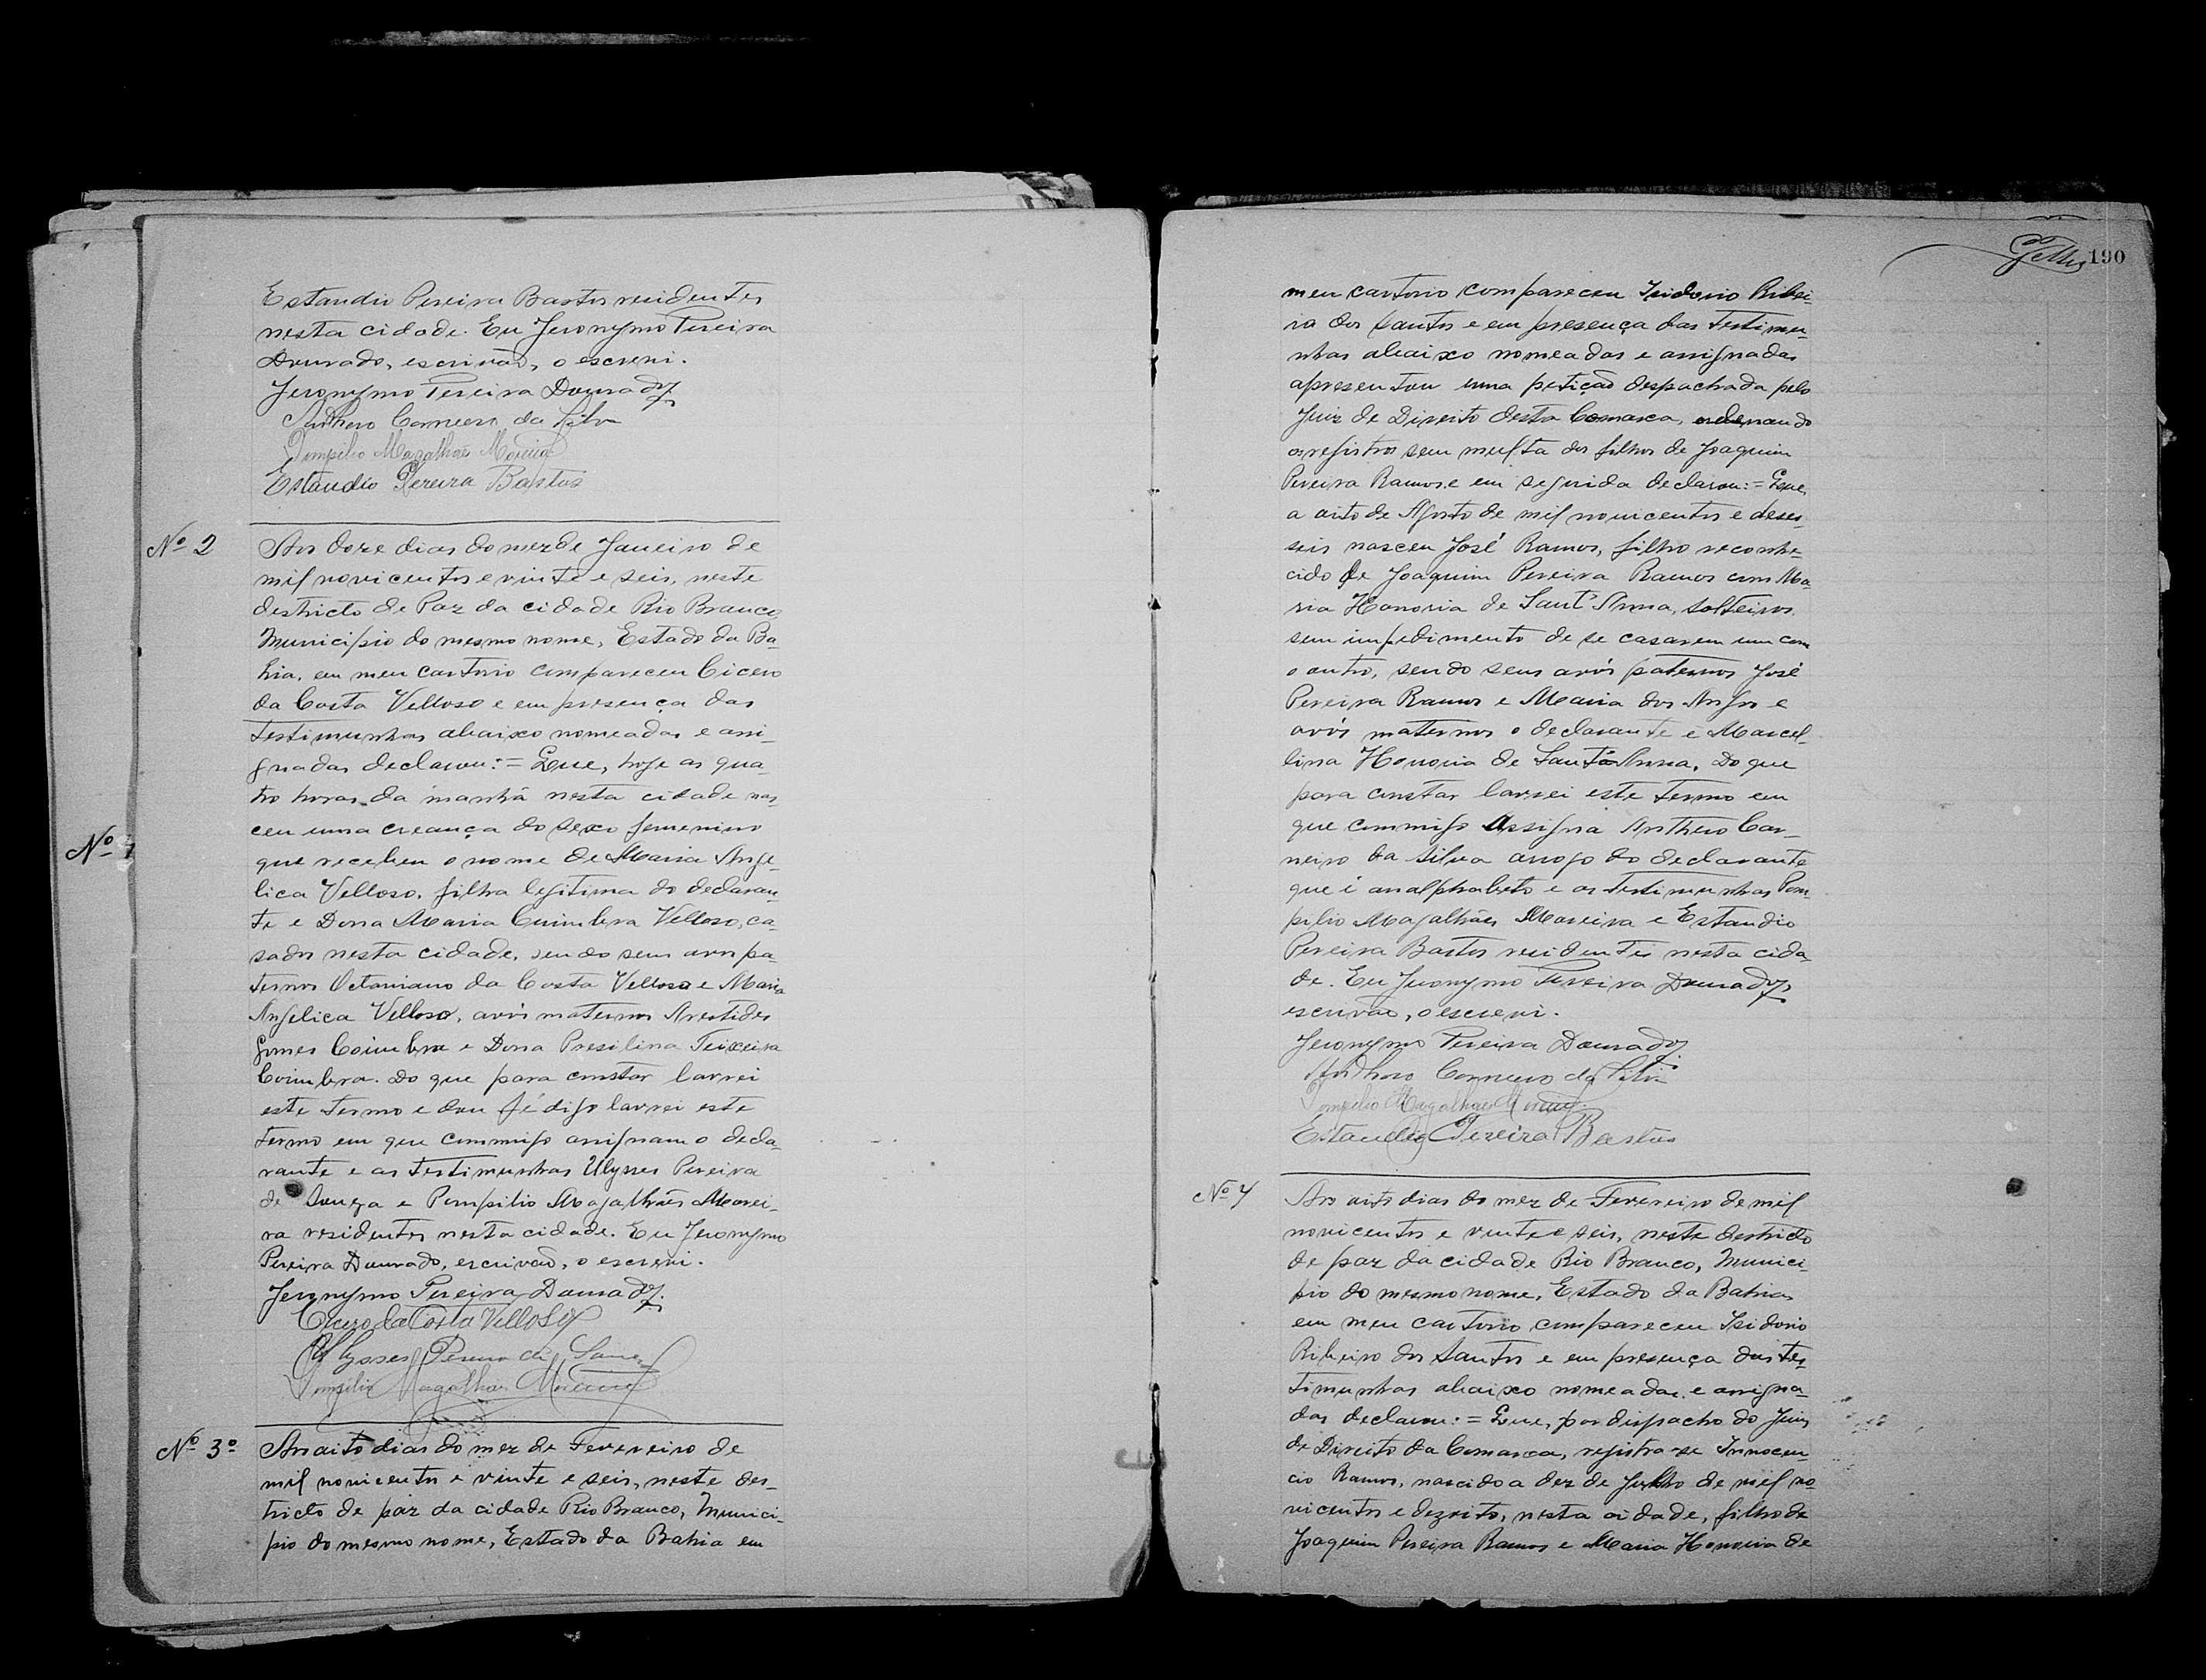 Estandio Pereira Bastos residentes
nesta cidade. Eu Jeronymo Pereira
Dourado, escrivão, o escrevi.
Jeronymo Pereira Dourado
Anthero Carneiro da Silva
Pompilio Magalhães Moreira
Estaudio Pereira Bastos
Nº 2
Aos doze dias do mez de Janeiro de
mil novicentos e vinte e seis, neste
destricto de Paz da cidade Rio Branco
Municipio do mesmo nome, Estado da Ba-
hia, em meu cartorio compareceu Cicero
da Costa Velloso e em presença das
testimunhas abaixo nomeadas e assi-
gnadas declarou: = Que, hoje as qua-
tro horas da manhã nesta cidade nas
ceu uma creança do sexo femenino
que recebeu o nome de Maria Ange-
lica Velloso, filha legitima do declaran-
te e Dona Maria Cuimbra Velloso, ca-
sados nesta cidade, sendo seus avos pa-
ternos Octaviano da Costa Velloso e Maria
Angelica Velloso, avós maternos Arestides
Gomes Coimbra e Dona Presilina Teixeira
Coimbra. Do que para constar lavrei
este termo e dou fé digo lavrei este
termo em que commigo assignam o decla-
rante e as testimunhas Ulysses Pereira
de Souza e Pompilio Magalhães Morei-
ra residentes nesta cidade. Eu Jeronymo
Pereira Dourado, escrivão, o escrevi.
Jeronymo Pereira Dourado
Cicero da Costa Velloso
Ulysses Pereira de Souza
Pompilio Magalhães Moreira
Nº 3º
Aos oito dias do mez de Fevereiro de
mil novicentos e vinte e seis, neste des-
tricto de paz da cidade Rio Branco, Munici-
pio do mesmo nome, Estado da Bahia em
Nº
190
meu cartorio compareceu Isidorio Ribei-
ro dos Santos e em presença das testimu-
nhas abaixo nomeadas e assignadas
apresentou uma petição despachada pelo
Juiz de Direito desta Comarca, ordenando
os registros sem multa dos filhos de Joaquim
Pereira Ramos, e em seguida declarou: = Que,
a oito de Agosto de mil novicentos e deses-
seis nasceu José Ramos, filho reconhe-
cido de Joaquim Pereira Ramos com Ma-
ria Honoria de Sant'Anna, solteiros
sem impedimento de se casarem um com
o outro, sendo seus avós paternos José
Pereira Ramos e Maria dos Anjos e
avós maternos o declarante e Marcel-
lina Honoria de Sant'Anna. Do que
para constar lavrei este termo em
que commigo assigna Anthero Car-
neiro da Silva arrogo do declarante
que é analphabeto e as testimunhas Pom-
pilio Magalhães Moreira e Estaudio
Pereira Bastos residentes nesta cida-
de. Eu Jeronymo Pereira Dourado,
escrivão, o escrevi.
Jeronymo Pereira Dourado
Anthero Carneiro da Silva
Pompilio Magalhães Moreira
Estaudio Pereira Bastos
Nº 4
Aos oito dias do mez de Fevereiro de mil
novicentos e vinte e seis, neste destricto
de paz da cidade Rio Branco, Munici-
pio do mesmo nome, Estado da Bahia
em meu cartorio compareceu Isidorio
Ribeiro dos Santos e em presença das tes-
timunhas abaixo nomeadas e assigna-
das declarou: = Que, por dispacho do Juiz
de Direito da Comarca, registra-se Innocen-
cio Ramos, nascido a dez de Julho de mil no-
vicentos e dezoito, nesta cidade, filho de
Joaquim Pereira Ramos e Maria Honoria de